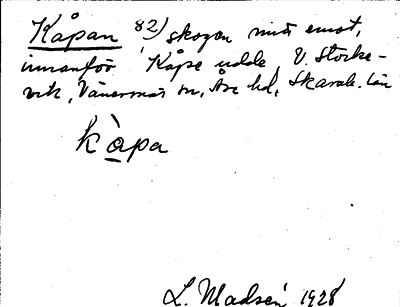 Kåpan 82) skogen mitt emot,
innanför Kåpe udde, V. Stocke-
vik, Vänersnäs sn, Åse hd, Skarab. län
kåpa
L. Madsén 1928